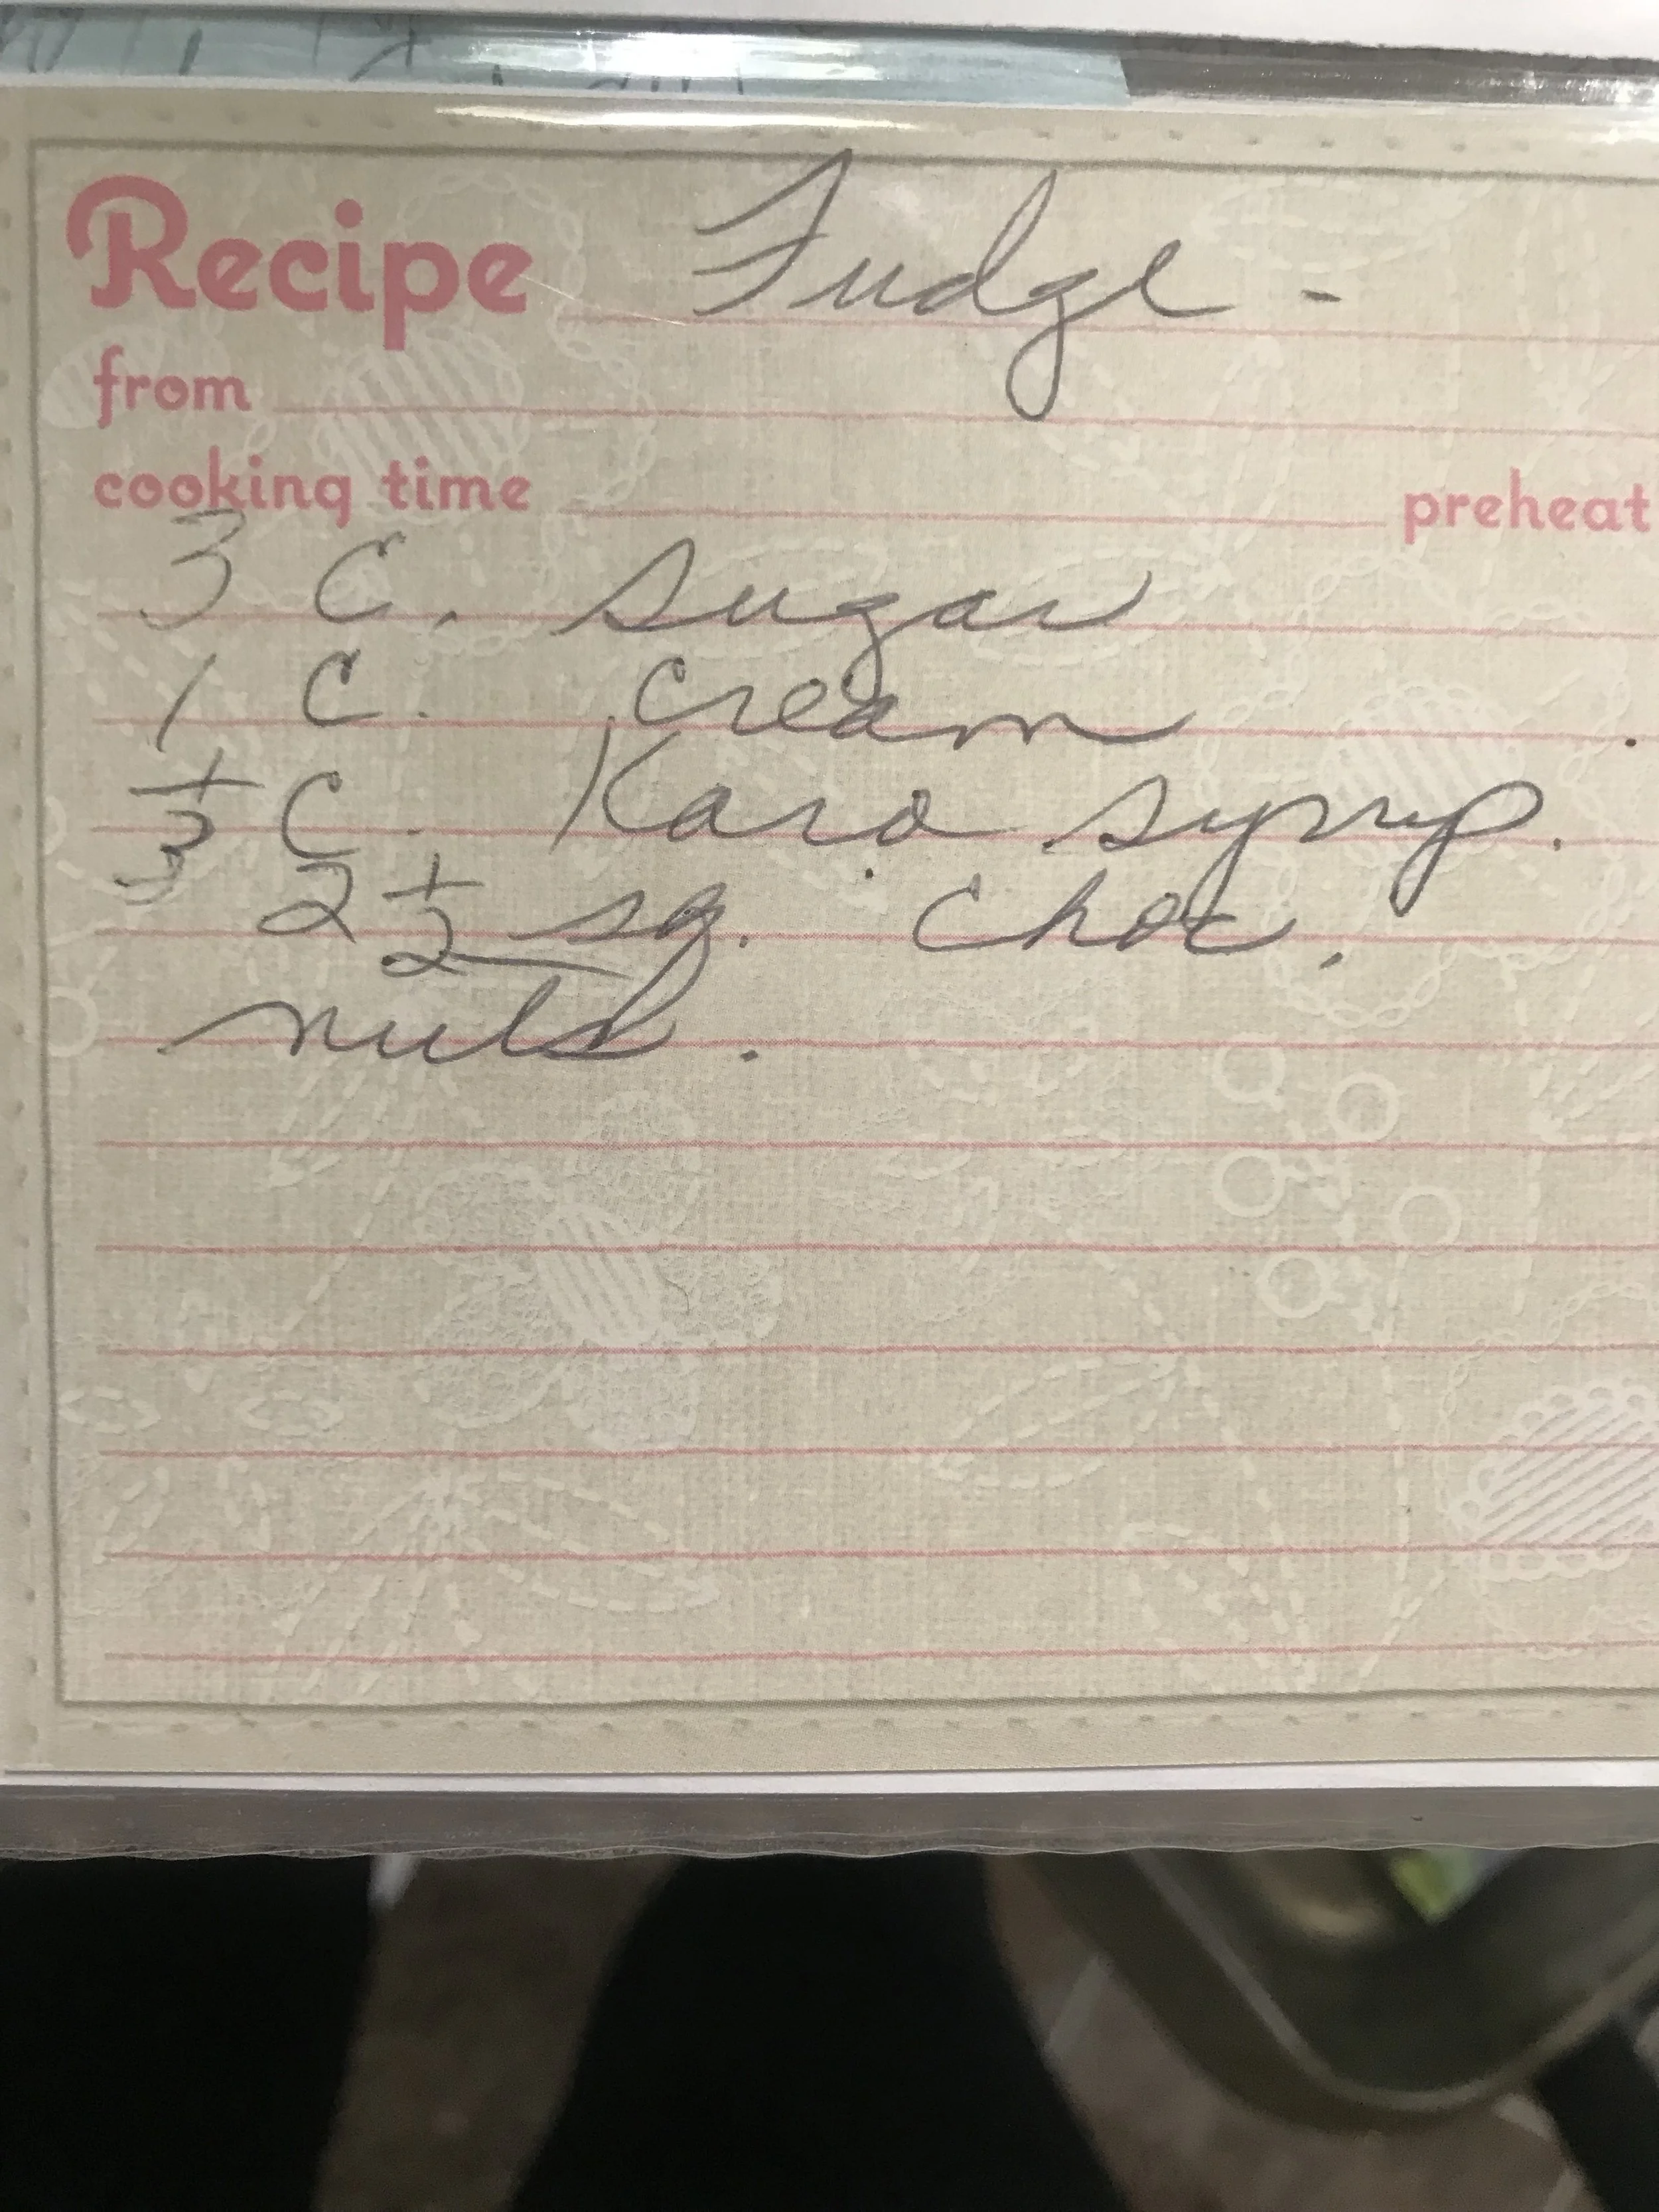 Recipe Fudge -
from
cooking time preheat
3 C. sugar
1 C. cream
1/3 C. Karo syrup.
2 1/2 sq. choc.
nuts.